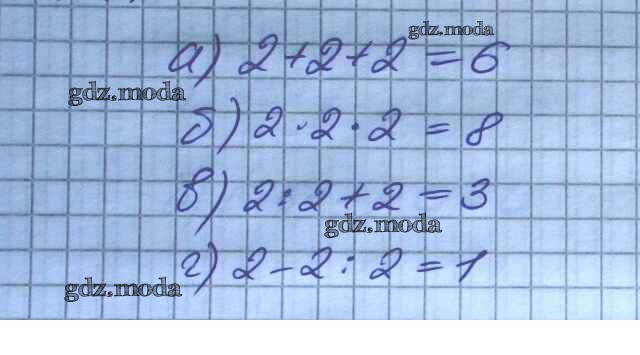 gdz.moda
а) 2+2+2 = 6
gdz.moda
б) 2·2·2 = 8
в) 2:2+2 = 3
gdz.moda
г) 2-2:2 = 1
gdz.moda